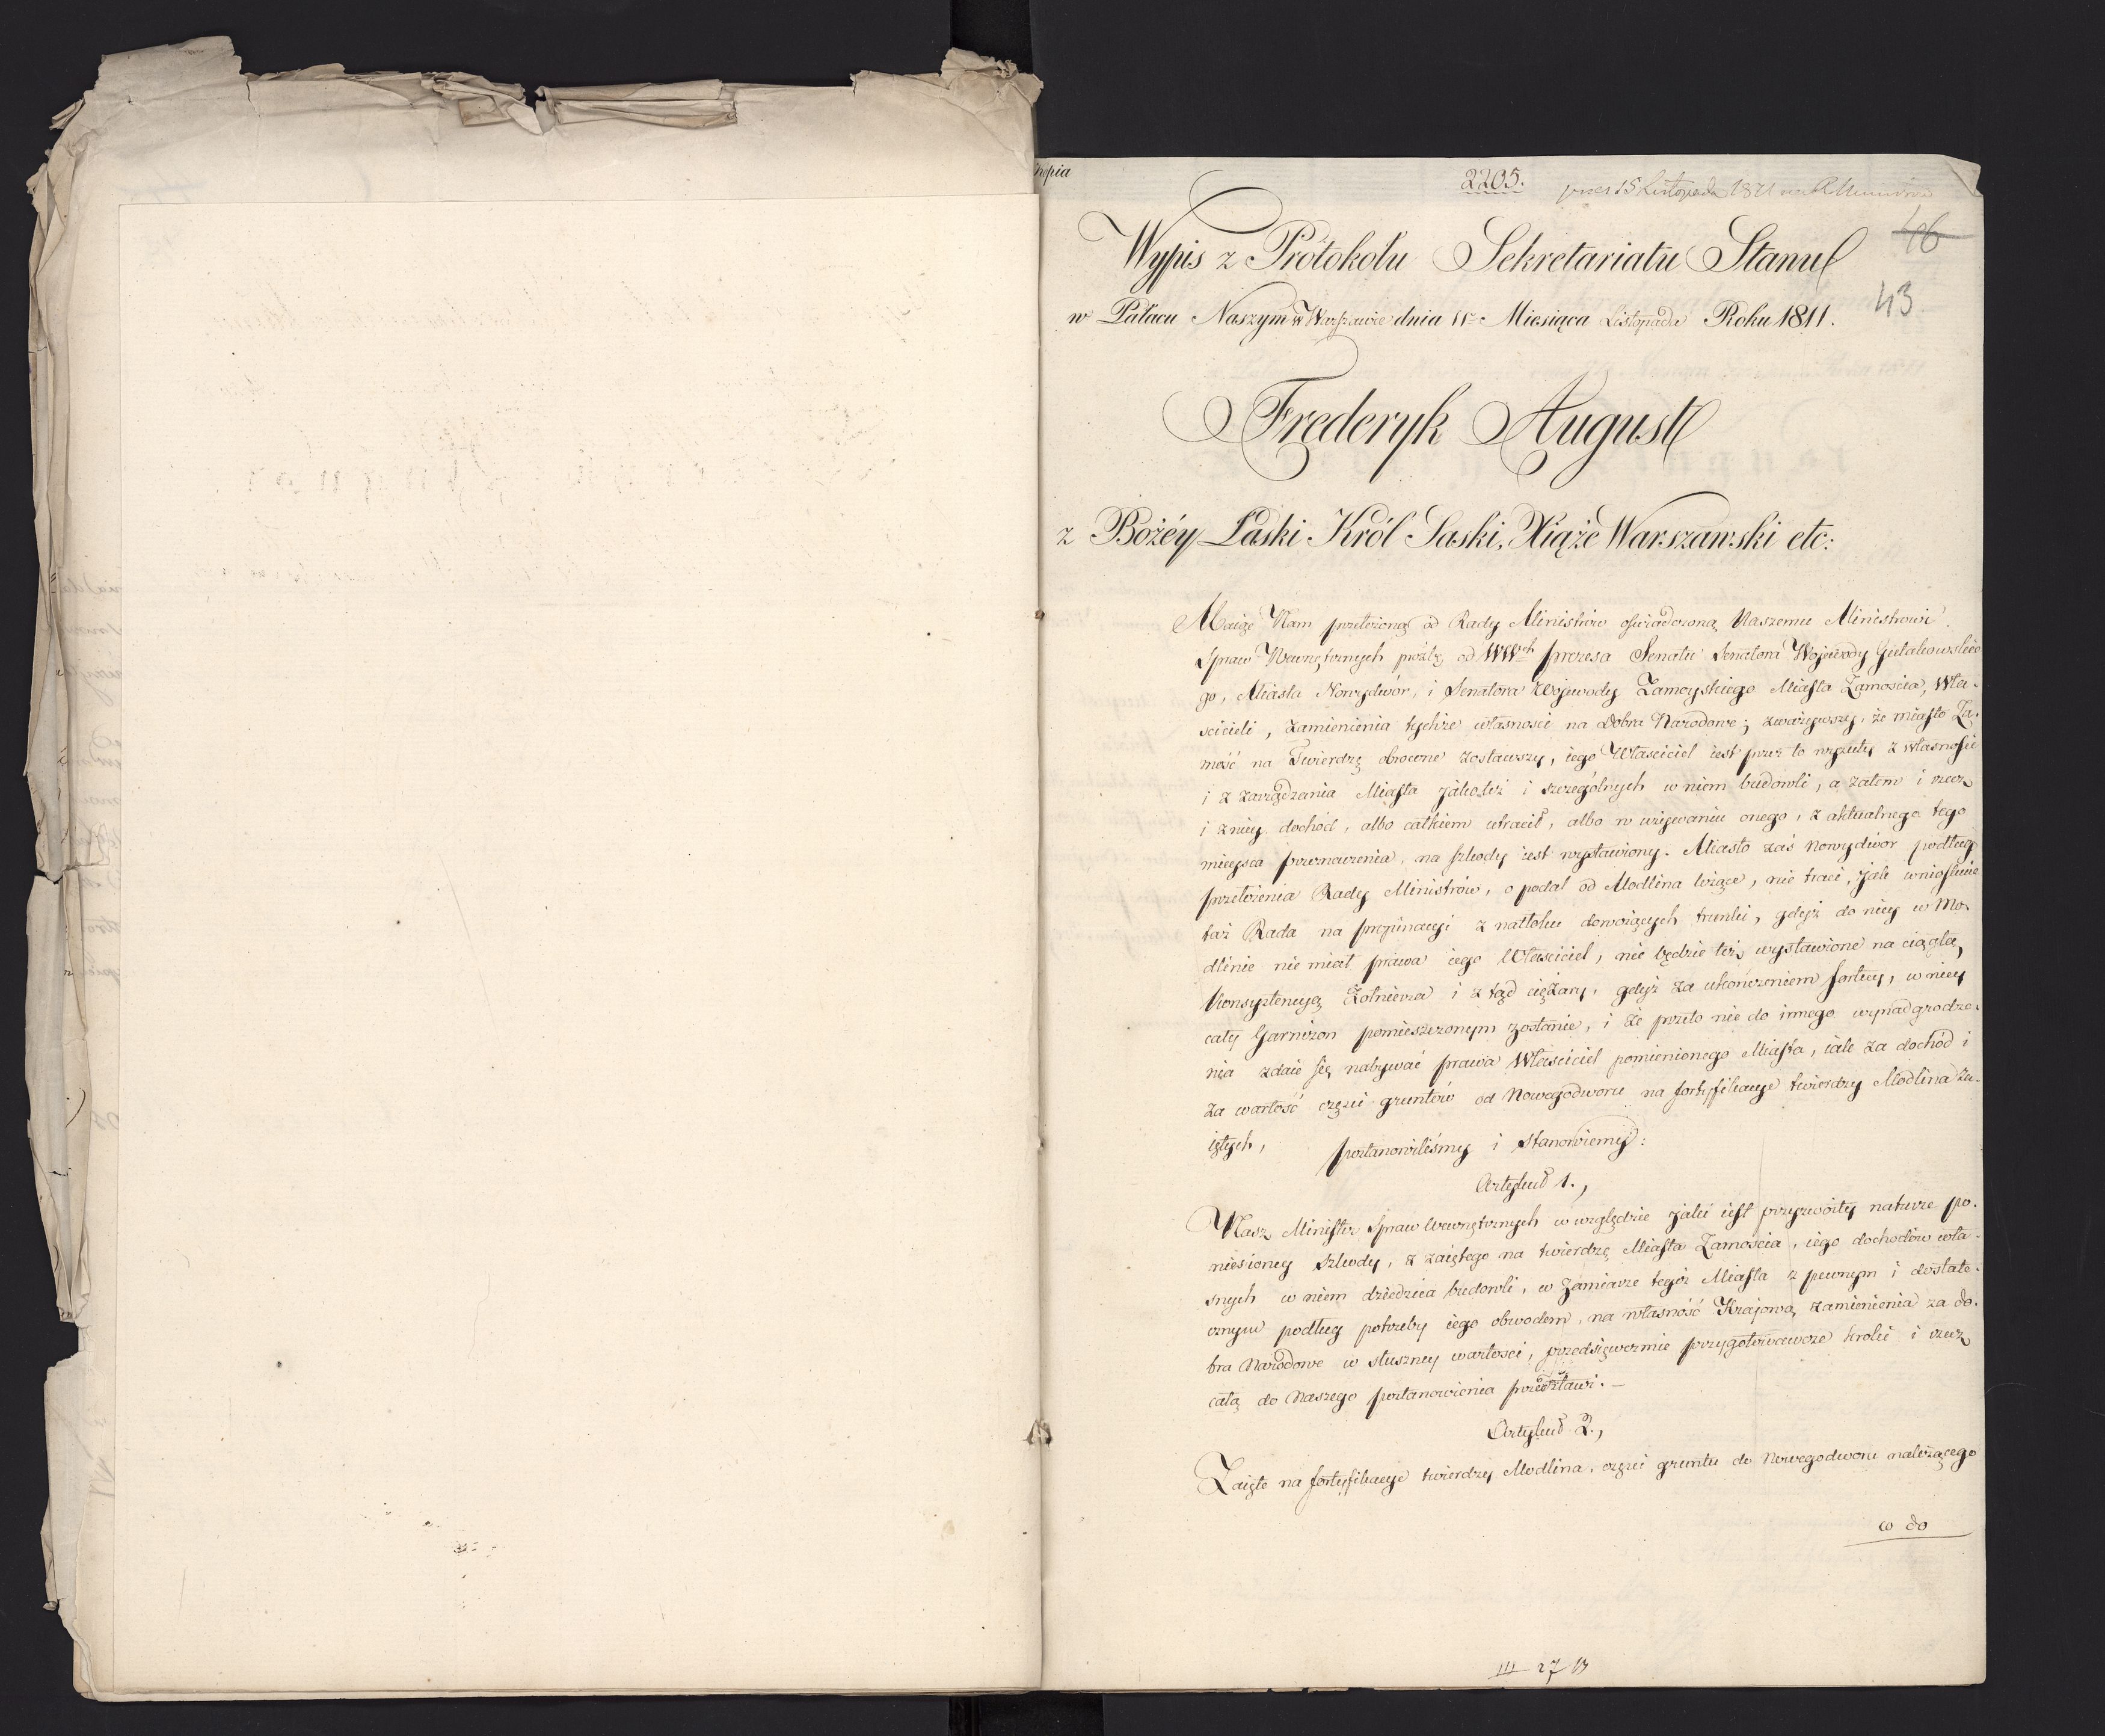 Kopia
2205.
przes 15 Listopada 1811
46
Wypis z Protokołu Sekretariatu Stanu
43
w Pałacu Naszym w Warszawie dnia 11 Miesiąca Listopada Roku 1811.
Frederyk August
z Bożéy Łaski Król Saski, Xiąże Warszawski etc:
Maiąc Nam przełożoną od Rady Ministrów oświadczoną Naszemu Ministrowi
Spraw Wewnętrznych proźbę od WWch prezesa Senatu Senatora Wojewody Gutakowskie
go, Miasta Nowydwór, i Senatora Wojewody Zamoyskiego Miasta Zamościa, Wła-
ścicieli, zamienienia tychże własności na Dobra Narodowe; zważywszy, że miasto Za-
mość na Twierdzę obrócone zostawszy, iego Właściciel iest przez to wyzuty z własności
i z zarządzania Miasta jakoteż i szczególnych w niem budowli, a zatem i rzecz
i z niey dochód, albo całkiem utracił, albo w używaniu onego, z aktualnego tego
mieysca przeznaczenia, na szkody iest wystawiony. Miasto zaś Nowydwór podług
przełożenia Rady Ministrów, opodal od Modlina leżące, nie traci, jak wniosła
taż Rada na propinacyi z natłoku dowożących trunki, gdyż do niey w Mo-
dlinie nie miał prawa iego Właściciel, nie będzie też wystawione na ciągłą
Konsystencyą Żołnierza i z tąd ciężary, gdyż za ukończeniem fortecy, w niey
cały Garnizon pomieszczonym zostanie, i że przeto nie do innego wynadgrodze-
nia zdaie się nabywać prawa Właściciel pomienionego Miasta, iak za dochód i
za wartość części gruntów od Nowegodworu na fortyfikacye twierdzy Modlina za-
iętych, postanowiliśmy i stanowiemy:
Artykuł 1.,
Nasz Minister Spraw Wewnętrznych w względzie jaki iest przyzwoity naturze po-
niesioney szkody, z zaiętego na twierdzę Miasta Zamościa, iego dochodów wła-
snych w niem dziedzica budowli, w zamiarze tegoż Miasta z pewnym i dostate-
cznym podług potrzeby iego obwodem, na własność Krajową zamienienia za do-
bra Narodowe w słuszney wartości, przedsięweźmie przygotowawcze kroki i rzecz
całą do Naszego postanowienia przedstawi.—
Artykuł 2.,
Zaięte na fortyfikacye twierdzy Modlina, części gruntu do Nowegodworu należącego
co do
III 27 B